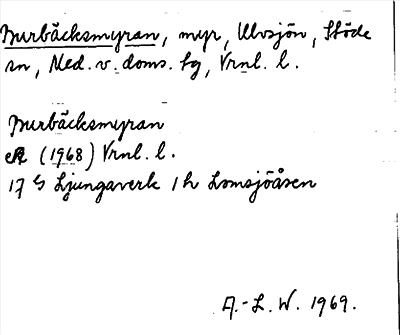 Burbäcksmyran, myr, Ulvsjön, Stöde
sn, Med. v. doms. tg, Vrnl. l.
Burbäcksmyran
ek (1968) Vrnl. l.
17 G Ljungaverk 1 h Lomsjöåsen
A.-L. W. 1969.